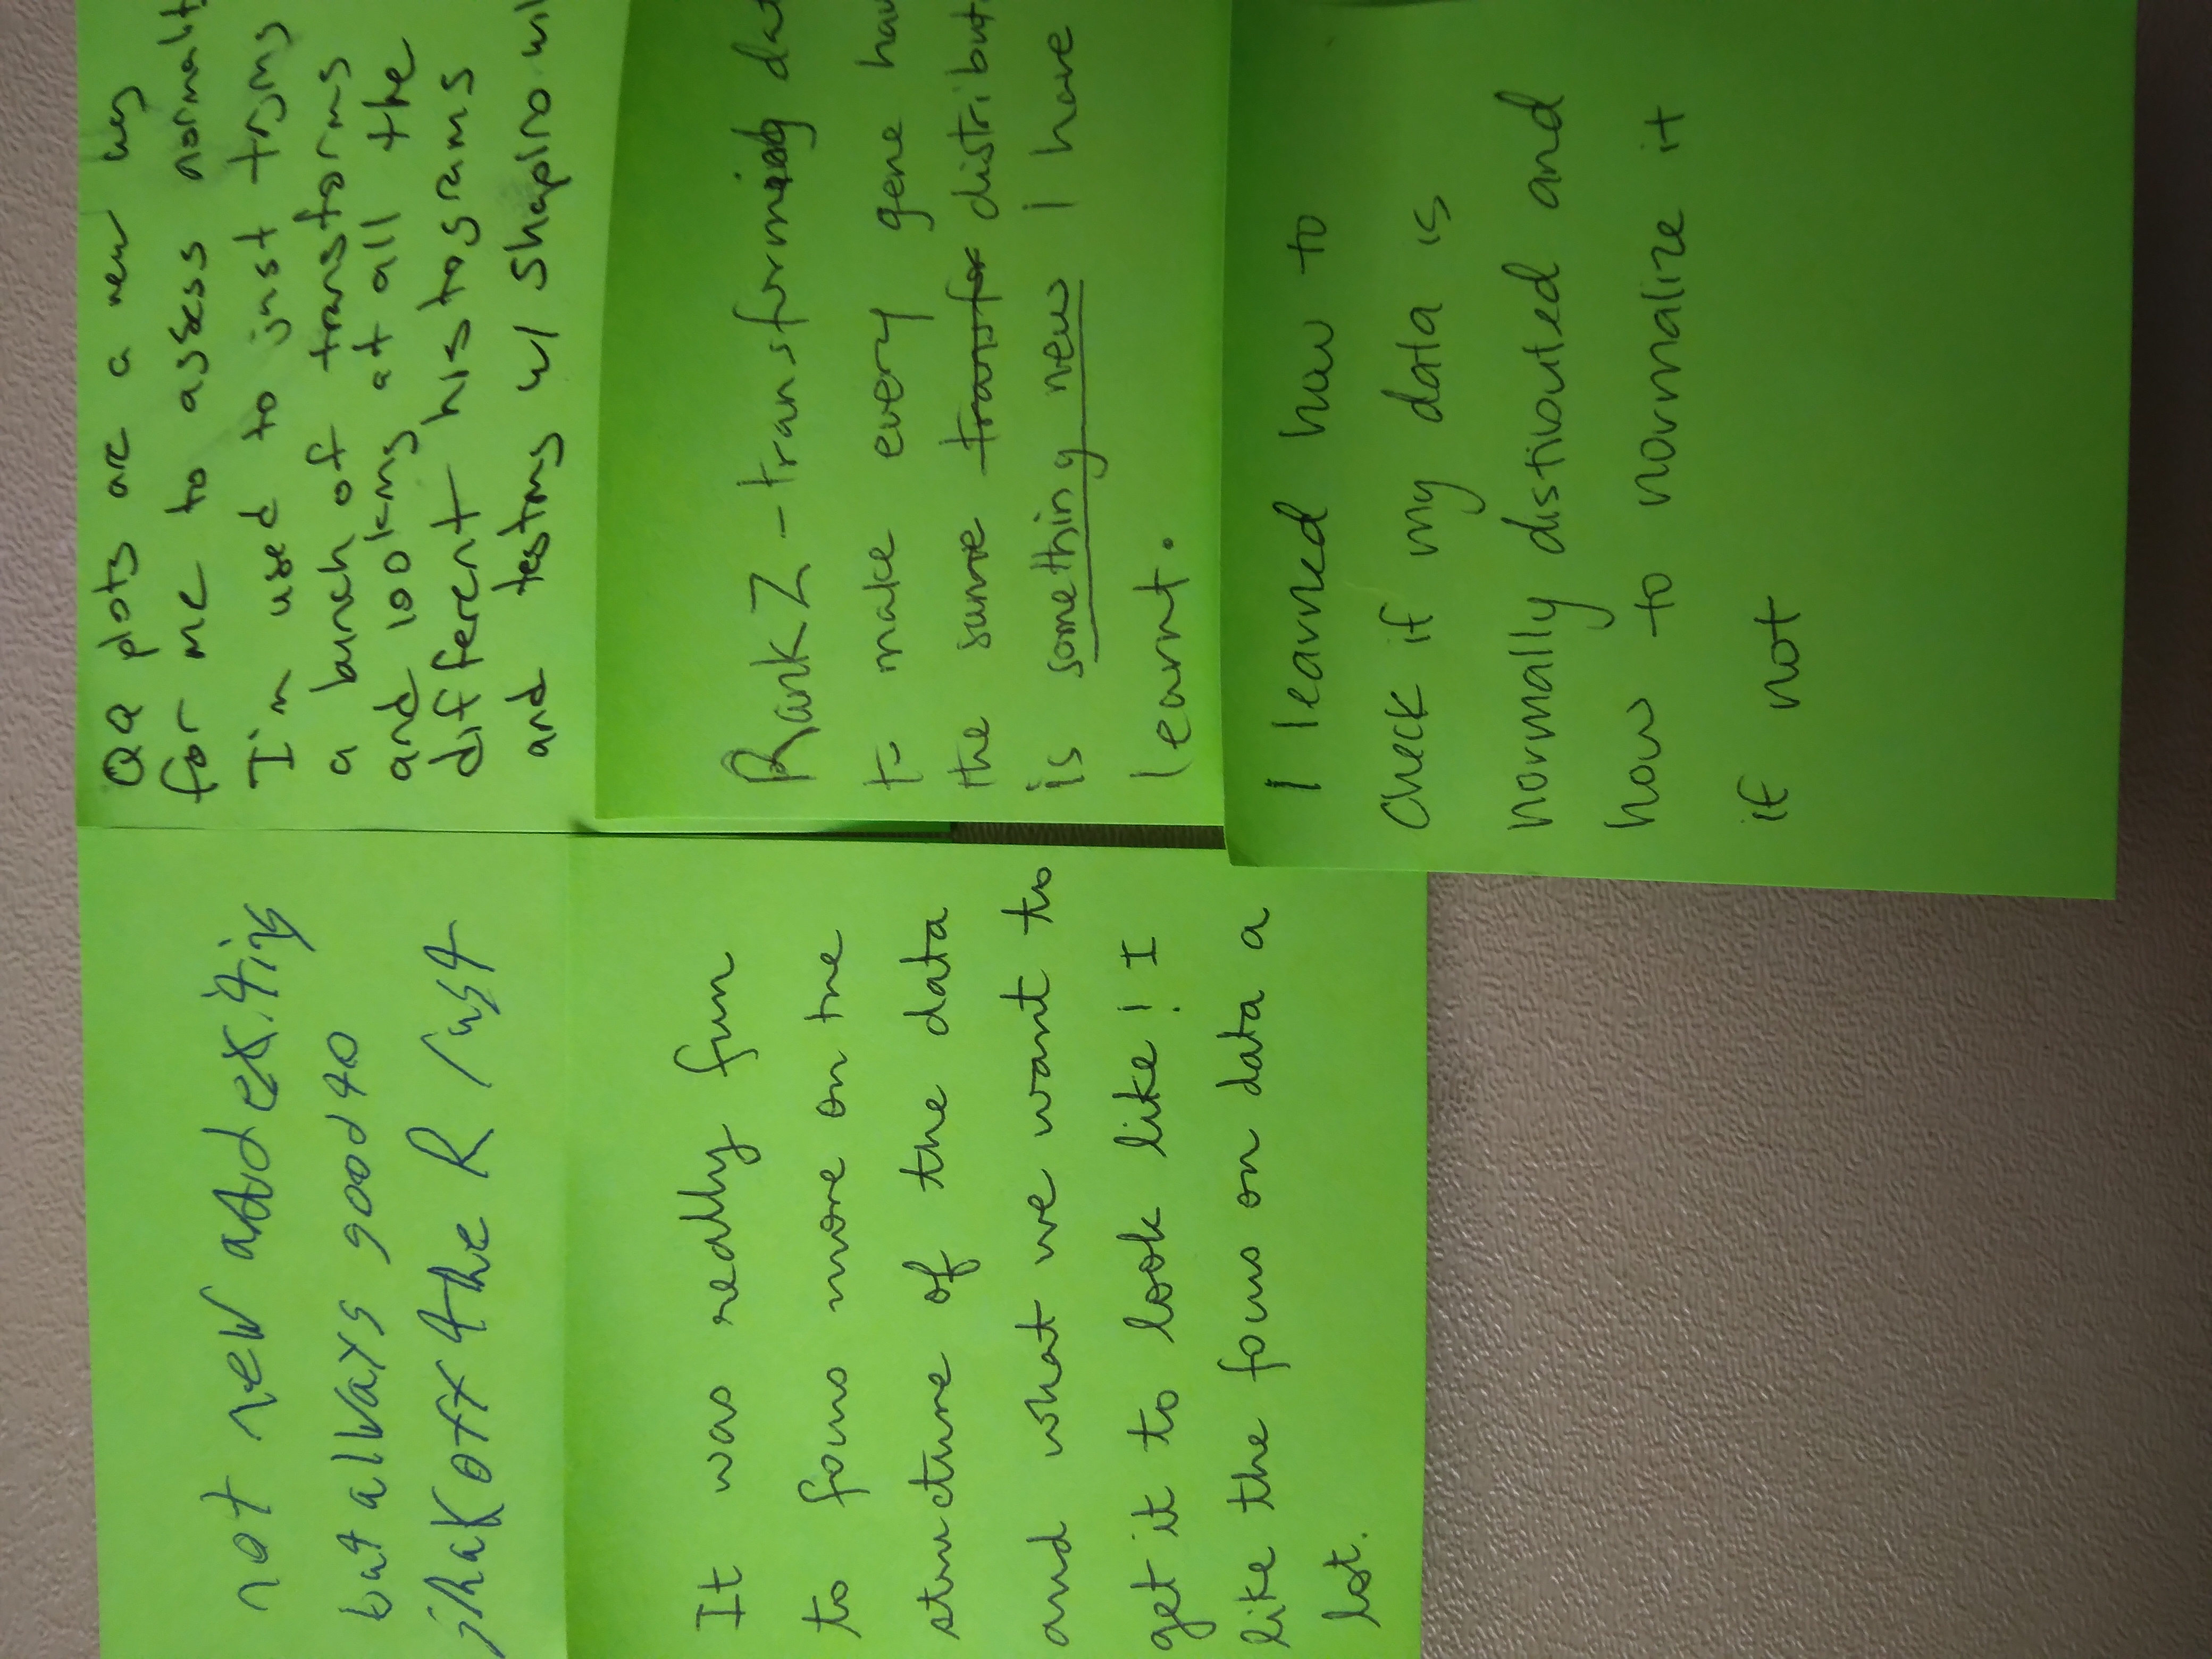 not new and exciting
but allways good to
shak off the R rust
It was really fun
to focus more on the
structure of the data
and what we want to
get it to look like! I
like the focus on data a
lot.
QQ plots are a new way
for me to assess normalit
I'm used to just trying
a bunch of transforms
and looking at all the
different histograms
and testing w/ Shapiro wil
RankZ-transforming dat
to make every gene hav
the same transfor distribut
is something new I have
learnt.
I learned how to
check if my data is
normally distibuted and
how to normalize it
if not